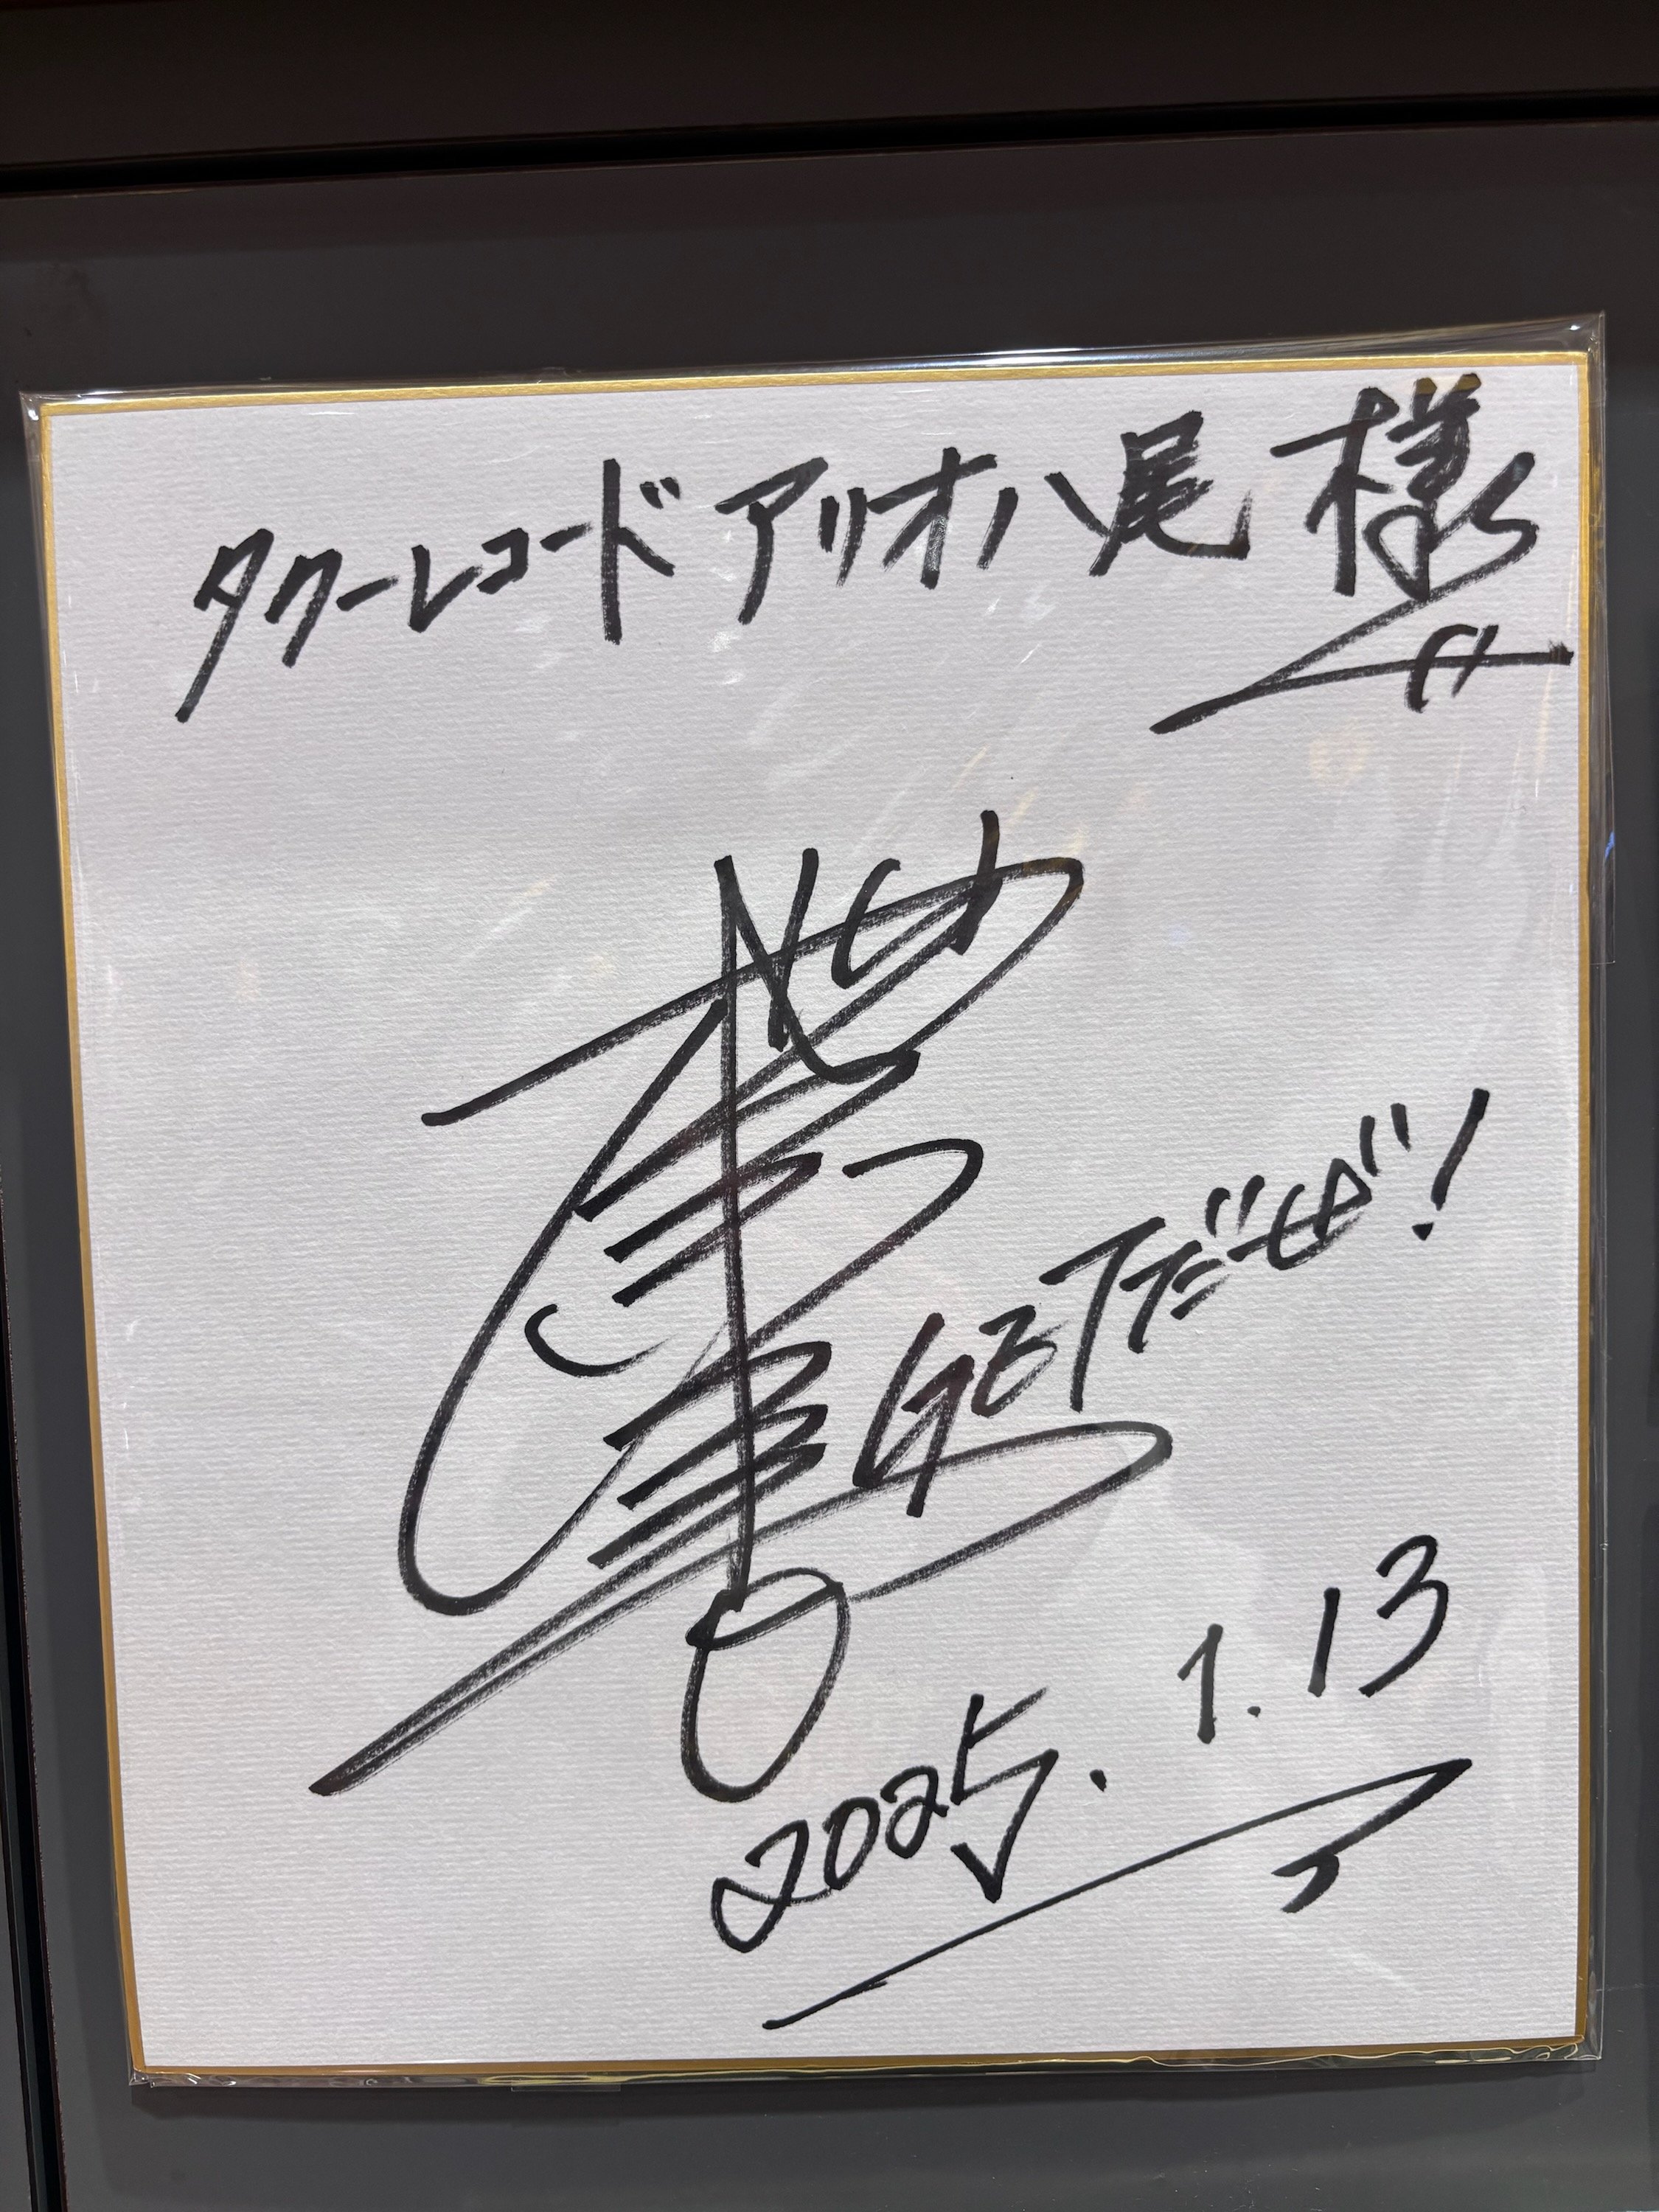 タワーレコード アリオ八尾 様
GETだぜ!
2025. 1. 13